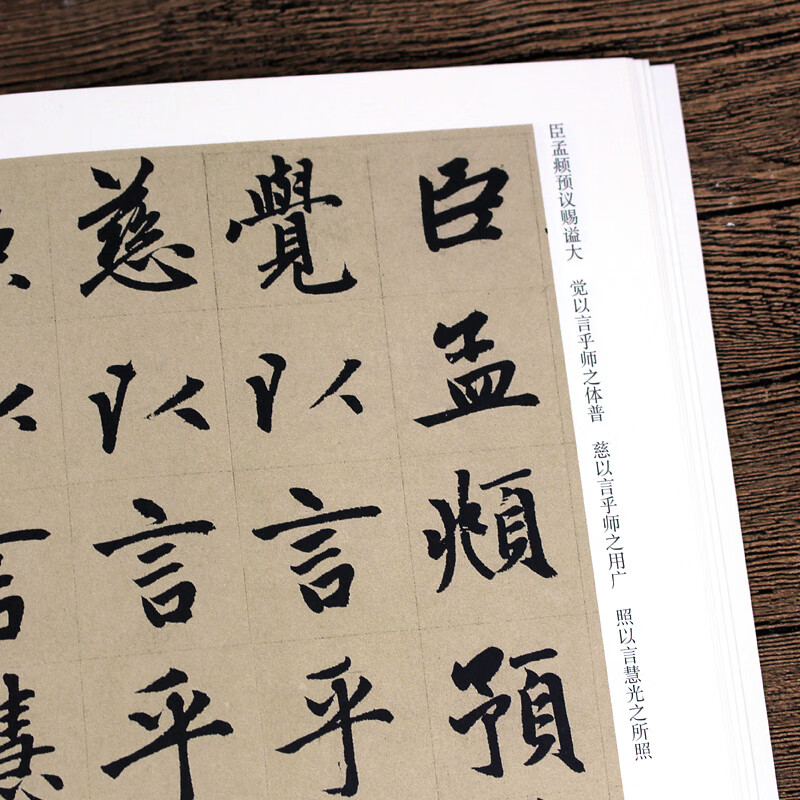 臣孟𫖯预议赐谥大
觉以言乎师之体普
慈以言乎师之用广
照以言慧光之所照
臣孟頫預
覺以言乎
慈以言乎
以言慧